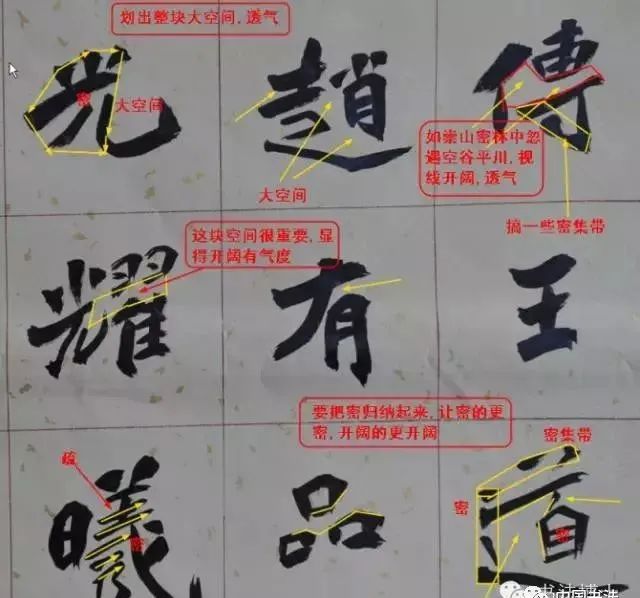 划出整块大空间，透气
光
密
大空间
趙
大空间
傳
如崇山密林中忽
遇空谷平川，视
线开阔，透气
搞一些密集带
这块空间很重要，显
得开阔有气度
耀
有
王
要把密归纳起来，让密的更
密，开阔的更开阔
疏
曦
密
品
密集带
密
道
密